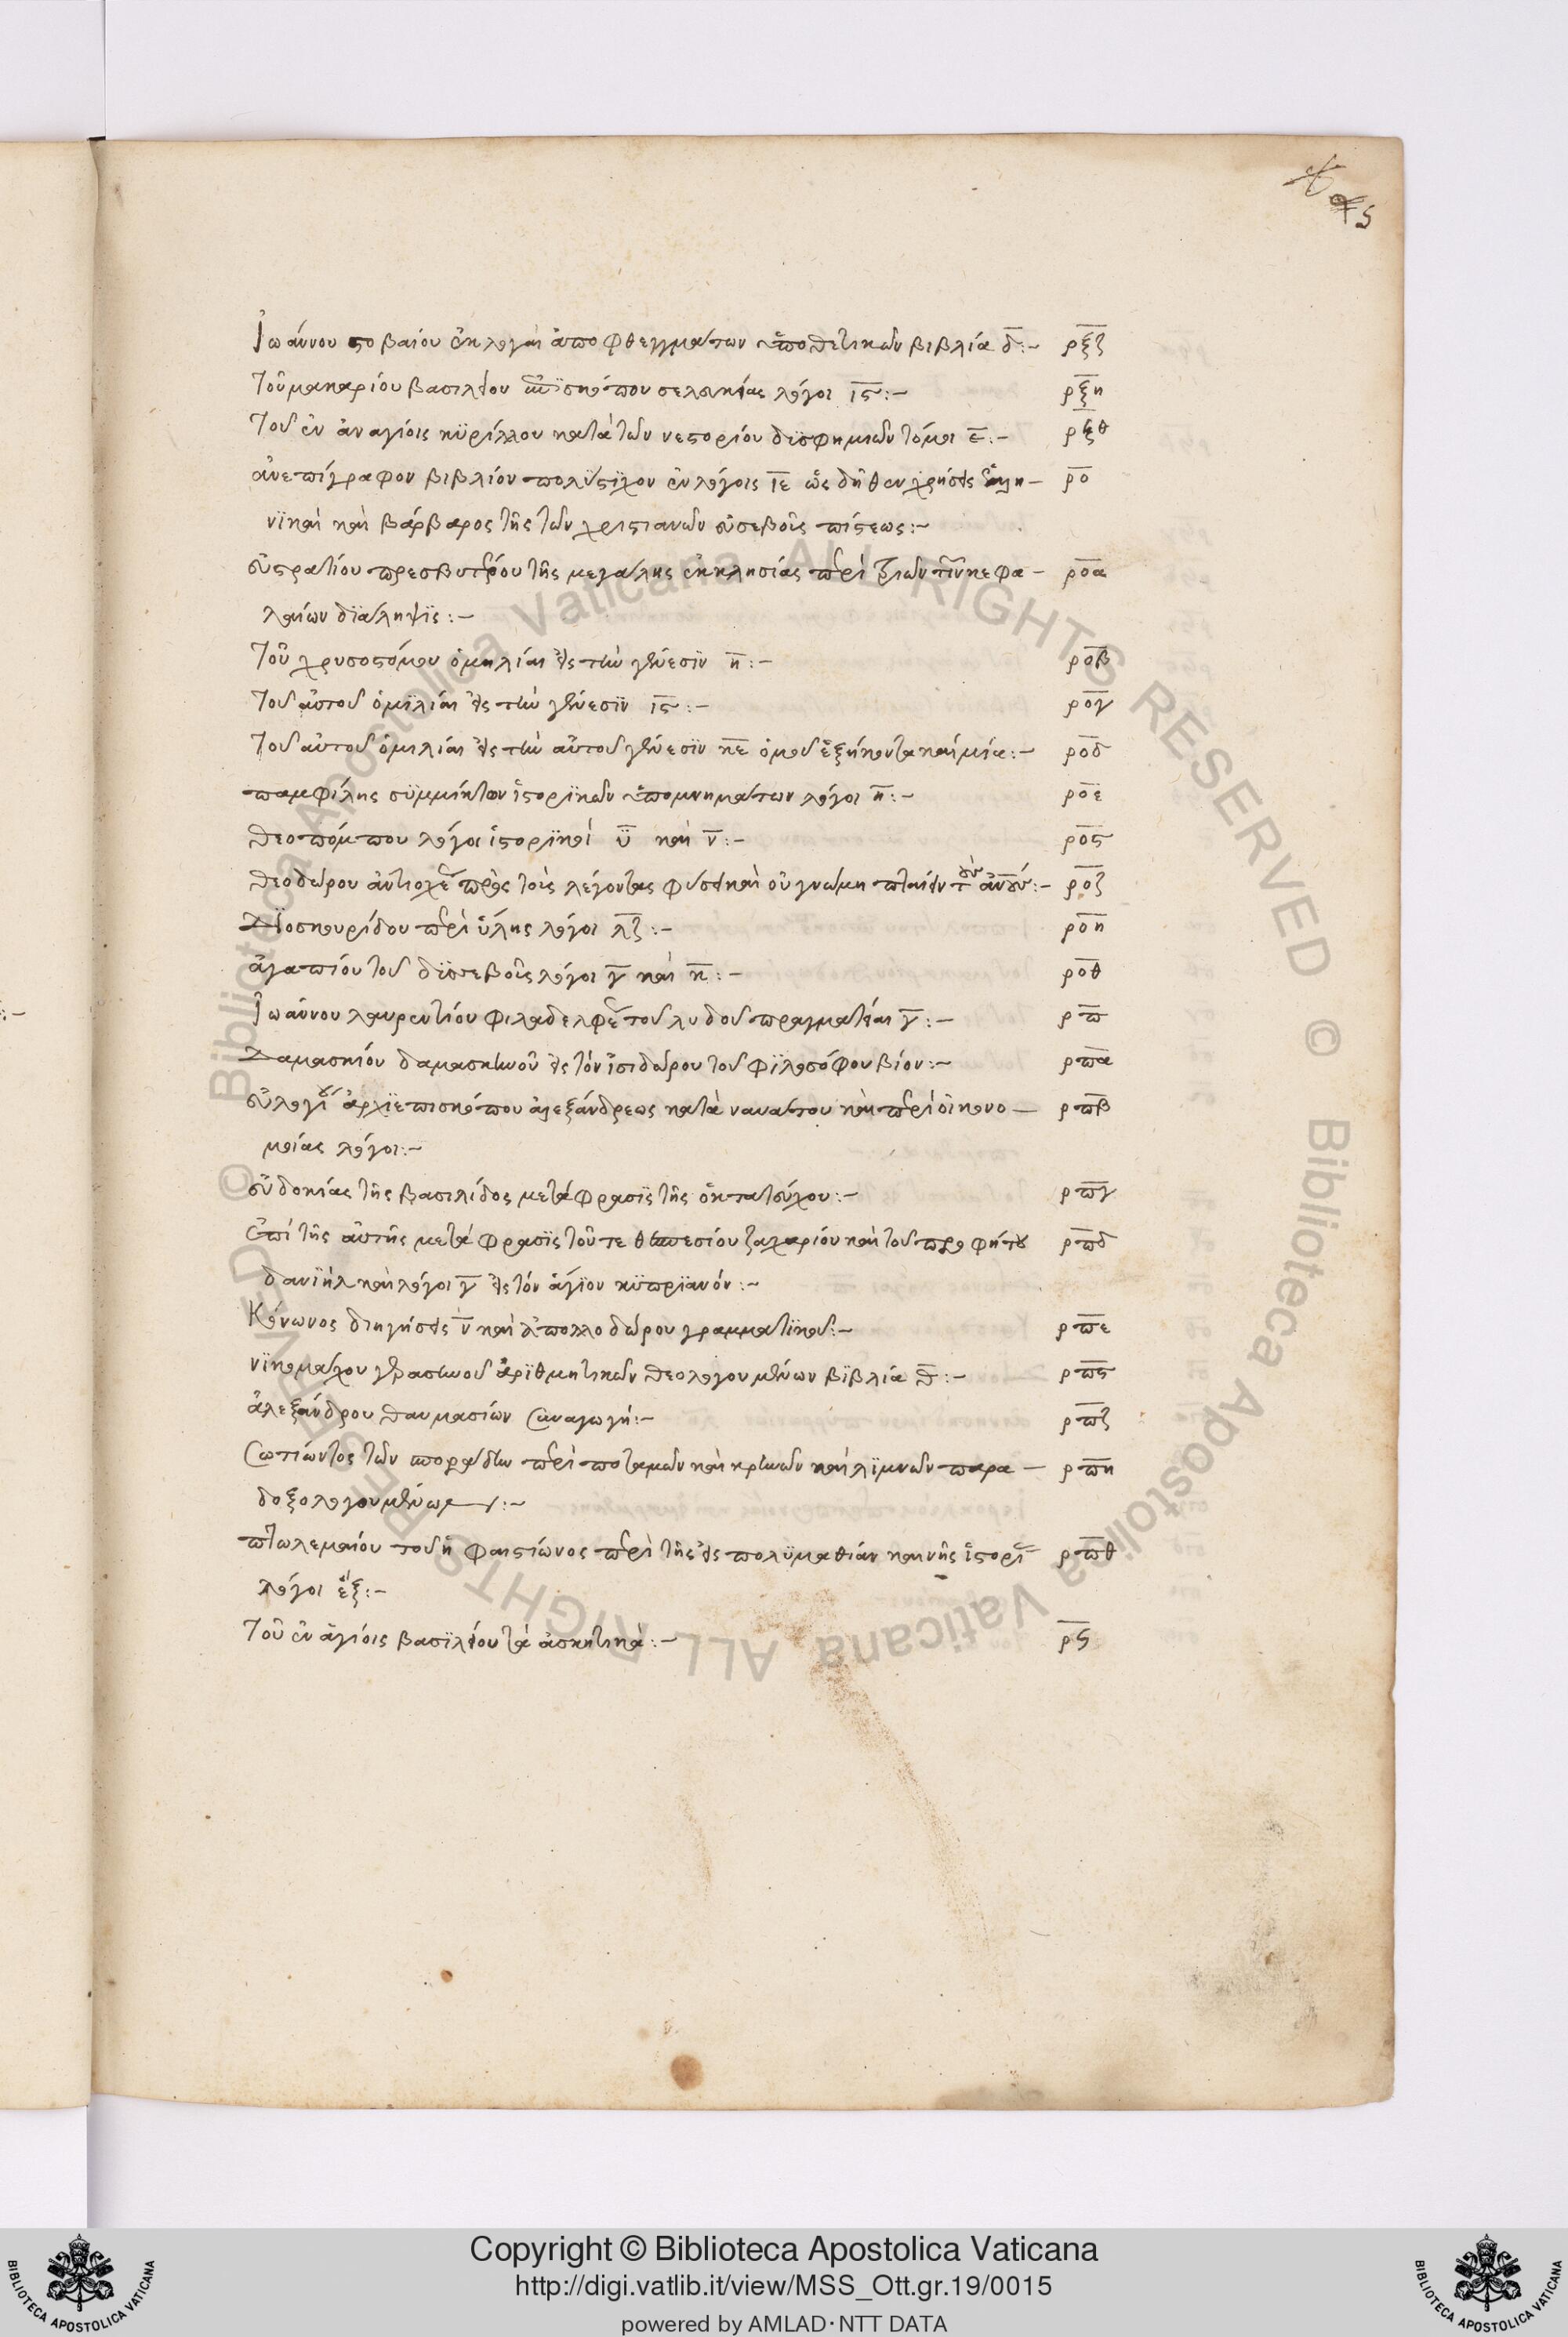 5
Ἰωάννου στοβαίου ἐκλογαὶ ἀποφθεγμάτων ὑποθετικῶν βιβλία δ̅:- ρ̅ξ̅ζ̅
Τοῦ μακαρίου βασιλείου ἐπϊσκόπου σελευκείας λόγοι ι̅ϛ̅:- ρ̅ξ̅η̅
Τοῦ ἐν ἀναγίοις κϋρίλλου κατὰ τῶν νεστορίου δϋσφημιῶν τόμοι ε̅:- ρ̅ξ̅θ̅
ἀνεπίγραφον βιβλίον πολύστϊχον ἐν λόγοις ι̅ε̅ ὡς δῆθεν χρήσεις ἑλλη- ρ̅ο̅
νϊκαὶ καὶ βάρβαρος τῆς τῶν χριστιανῶν εὐσεβοῦς πίστεως:-
εὐστρατίου πρεσβυτέρου τῆς μεγάλης ἐκκλησίας περὶ τριῶν τινῶν κεφα- ρ̅ο̅α̅
λαίων δϊάληψϊς:-
Τοῦ χρυσοστόμου ὁμηλίαι εἰς τὴν γένεσϊν η̅:- ρ̅ο̅β̅
Τοῦ αὐτοῦ ὁμϊλίαι εἰς τὴν γένεσϊν ι̅ϛ̅:- ρ̅ο̅γ̅
Τοῦ αὐτοῦ ὁμιλίαι εἰς τὴν αὐτοῦ γένεσϊν κ̅ε̅ ὁμοῦ ἑξήκοντα καὶ μία:- ρ̅ο̅δ̅
παμφίλης σϋμμίκτων ἱστορϊκῶν ὑπομνημάτων λόγοι η̅:- ρ̅ο̅ε̅
θεοπόμπου λόγοι ἱστορϊκοὶ ν̅ καὶ ν̅:- ρ̅ο̅ϛ̅
θεοδώρου ἀντιοχέ πρὸς τοὺς λέγοντας φύσει καὶ οὐ γνώμη πταίειν τοὺς ἀν̅ους:- ρ̅ο̅ζ̅
Δϊοσκουρίδου περὶ ὕλης λόγοι λ̅ζ̅:- ρ̅ο̅η̅
ἀγαπίου τοῦ δϋσσεβοῦς λόγοι γ̅ καὶ κ̅:- ρ̅ο̅θ̅
Ἰωάννου λαυρεντίου φιλαδελφέ τοῦ λυδοῦ πραγματεῖαι γ̅:- ρ̅π̅
Δαμασκίου δαμασκηνοῦ εἰς τὸν ἰσιδώρου τοῦ φϊλοσόφου βίον:- ρ̅π̅α̅
εὐλογίου ἀρχϊεπισκόπου ἀλεξάνδρεως κατὰ ναυάτου καὶ περὶ οἰκονο- ρ̅π̅β̅
μείας λόγοι:-
εὐδοκίας τῆς βασιλίδος μετάφρασϊς τῆς ὀκτατεύχου:- ρ̅π̅γ̅
ἐπὶ τῆς αὐτῆς μετάφρασϊς τοῦ τε θεσπεσίου ζαχαρίου καὶ τοῦ προφήτου ρ̅π̅δ̅
δανϊὴλ καὶ λόγοι γ̅ εἰς τὸν ἅγϊον κϋπρϊανόν:-
Κόνωνος διηγήσεις ν̅ καὶ ἀπολλοδώρου γραμματϊκοῦ:- ρ̅π̅ε̅
νϊκομάχου γερασηνοῦ ἀρϊθμητικῶν θεολογουμένων βϊβλία θ̅:- ρ̅π̅ϛ̅
ἀλεξάνδρου θαυμασίων συναγωγή:- ρ̅π̅ζ̅
Σωτίωντος τῶν σποράδην περὶ ποταμῶν καὶ κρηνῶν καὶ λϊμνῶν παρα- ρ̅π̅η̅
δοξολογουμένων:-
πτωλεμαίου τοῦ ἡφαιστίωνος περὶ τῆς εἰς πολϋμαθίαν καινῆς ἱστορί ρ̅π̅θ̅
λόγοι ἕξ:-
Τοῦ ἐν ἁγίοις βασϊλείου τὰ ἀσκητικὰ:- ρ̅ϟ̅
© Biblioteca Apostolica Vaticana ALL RIGHTS RESERVED © Biblioteca Apostolica Vaticana ALL RIGHTS RESERVED
Copyright © Biblioteca Apostolica Vaticana
http://digi.vatlib.it/view/MSS_Ott.gr.19/0015
powered by AMLAD·NTT DATA
BIBLIOTECA APOSTOLICA VATICANA
BIBLIOTECA APOSTOLICA VATICANA